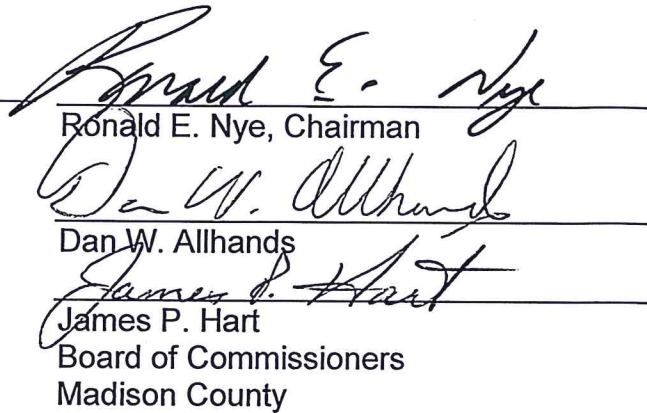 Ronald E. Nye
Ronald E. Nye, Chairman
Dan W. Allhands
Dan W. Allhands
James P. Hart
James P. Hart
Board of Commissioners
Madison County